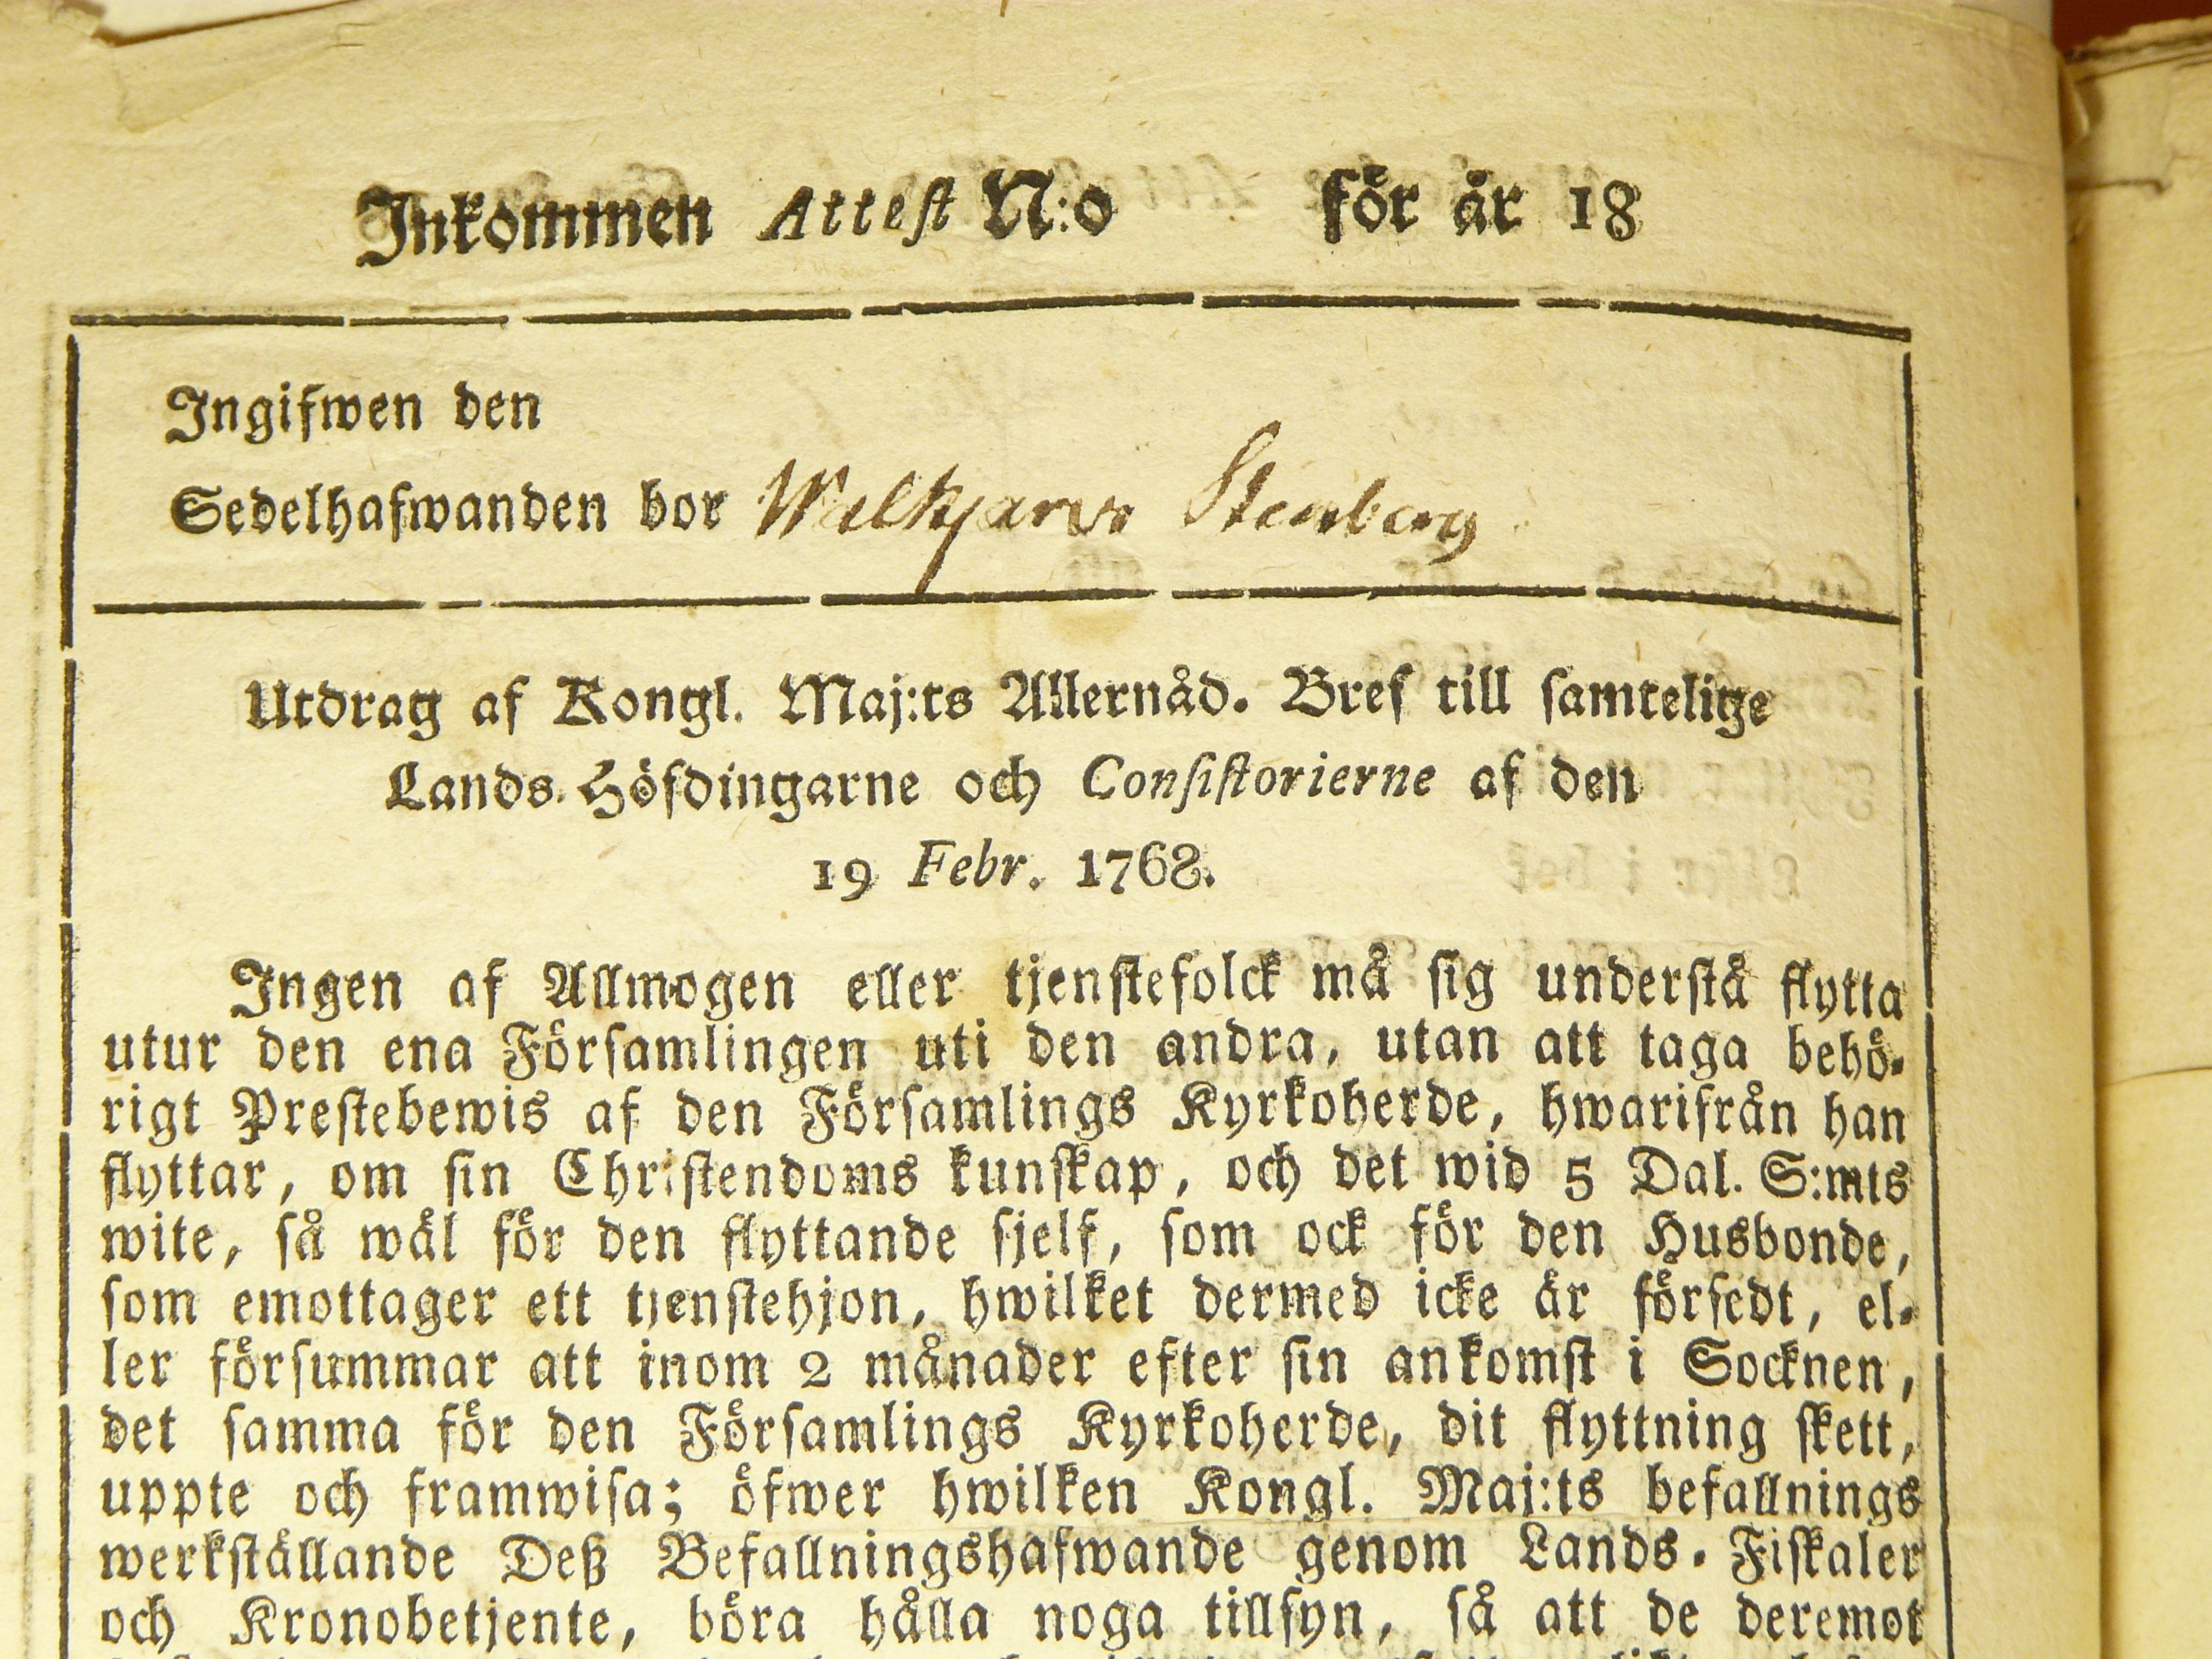 Inkommen Attest N:o för år 18
Ingifwen den
Sedelhafwanden bor Walkjarwi Stenberg
Utdrag af Kongl. Maj:ts Allernåd. Bref till samtelige
Lands-Höfdingarne och Consistorierne af den
19 Febr. 1768.
Ingen af Allmogen eller tjenstefolck må sig understå flytta
utur den ena Församlingen uti den andra, utan att taga behö-
rigt Prestebewis af den Församlings Kyrkoherde, hwarifrån han
flyttar, om sin Christendoms kunskap, och det wid 5 Dal. S:mts
wite, så wäl för den flyttande sjelf, som ock för den Husbonde,
som emottager ett tjenstehjon, hwilket dermed icke är försedt, el-
ler försummar att inom 2 månader efter sin ankomst i Socknen,
det samma för den Församlings Kyrkoherde, dit flyttning skett,
uppte och framwisa; öfwer hwilken Kongl. Maj:ts befallnings
werkställande Deß Befallningshafwande genom Lands-Fiskaler
och Kronobetjente, böra hålla noga tillsyn, så att de deremot